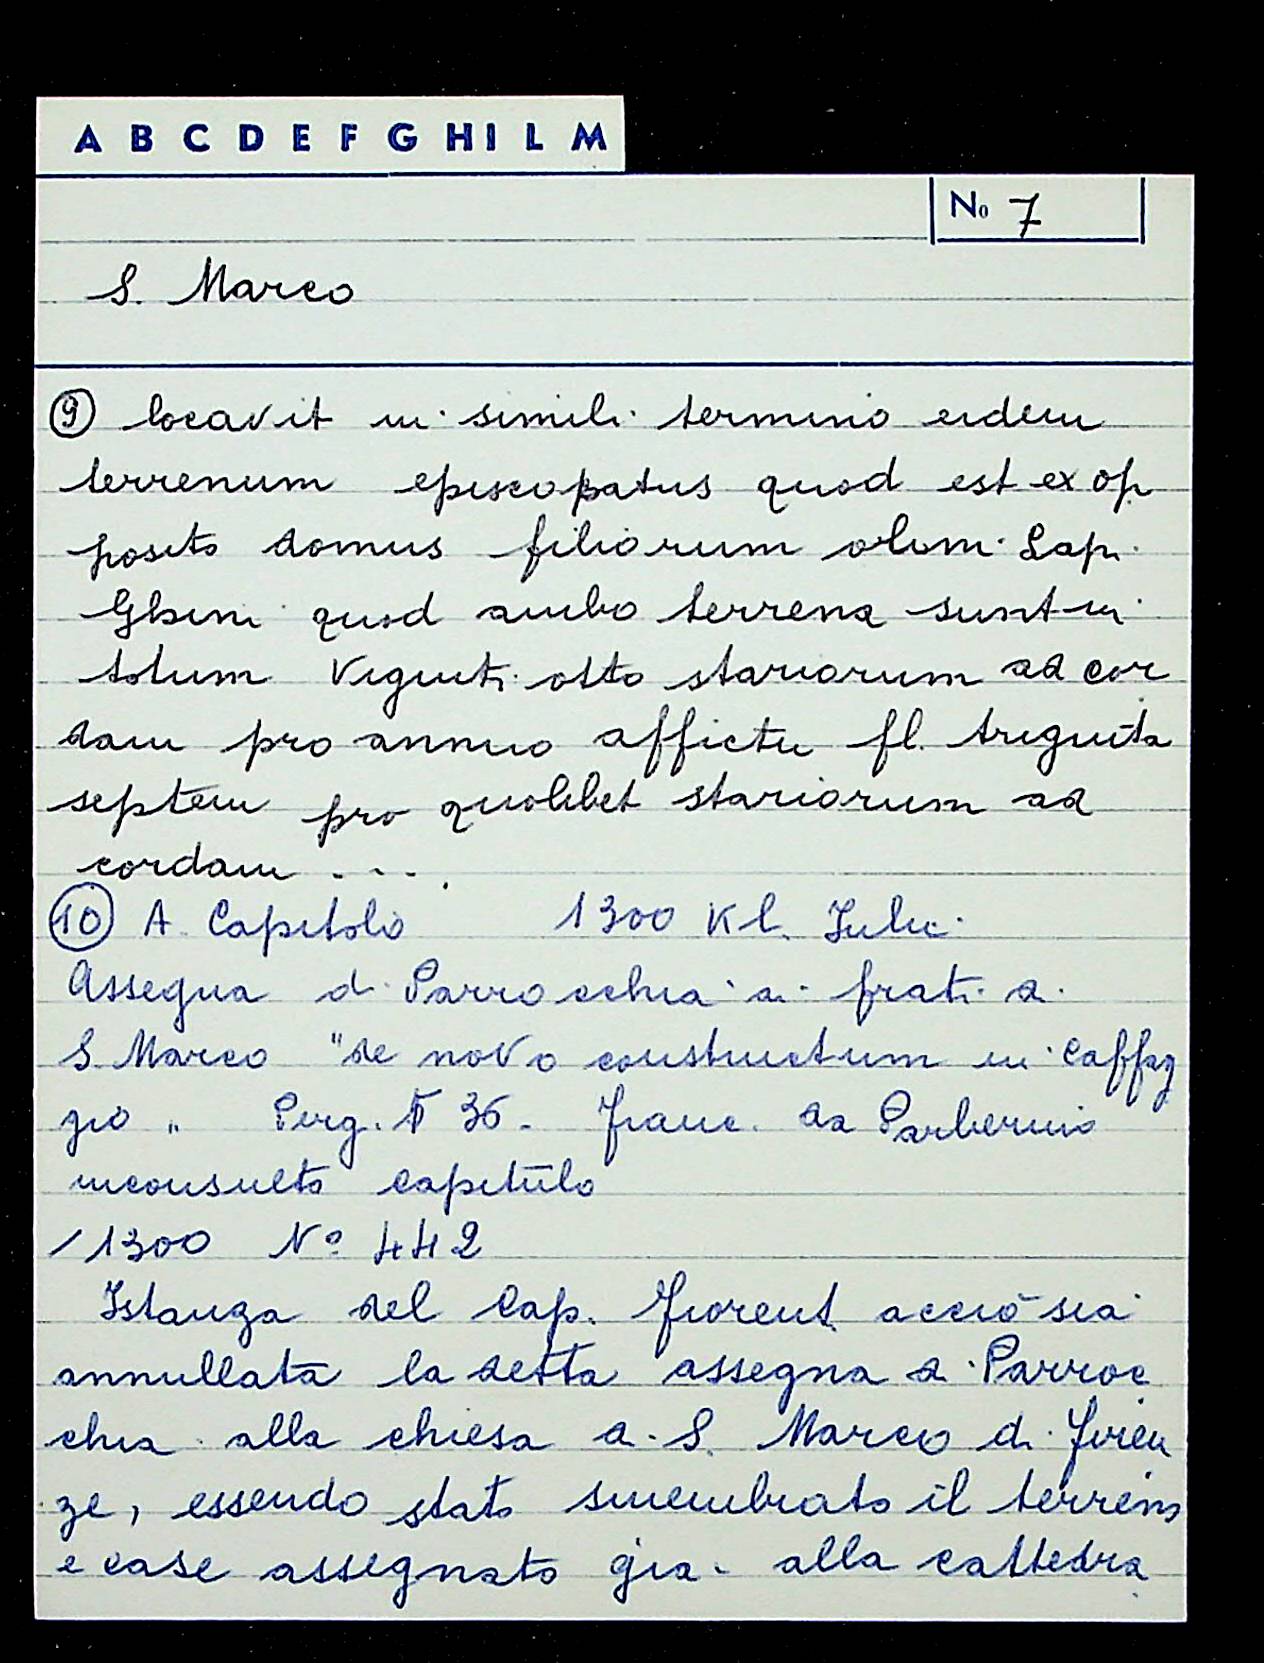 A B C D E F G H I L M
No 7
S. Marco
9 locavit in simili termino eidem
terrenum episcopatus quod est ex op
posito domus filiorum olim Lapi
Ghini quod ambo terrena sunt in
totum viginti otto stariorum ad cor
dam pro annuo affictu fl. triginta
septem pro quolibet stariorum ad
cordam ....
10 A. Capitolo 1300 Kl. Julii
Assegna di Parrocchia ai frati di
S. Marco "de novo constructum in Caffag
gio" Perg. 36. Franc. da Barberino
inconsulto capitulo
/1300 No 442
Istanza del Cap. Fiorent. acciò sia
annullata la detta assegna di Parroc
chia alla chiesa di S. Marco di Firen
ze, essendo stato smembrato il terreno
e case assegnato già alla cattedra